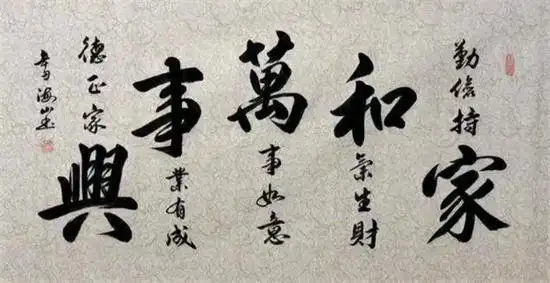 勤儉持家
和氣生財
萬事如意
事業有成
德正家興
海山書